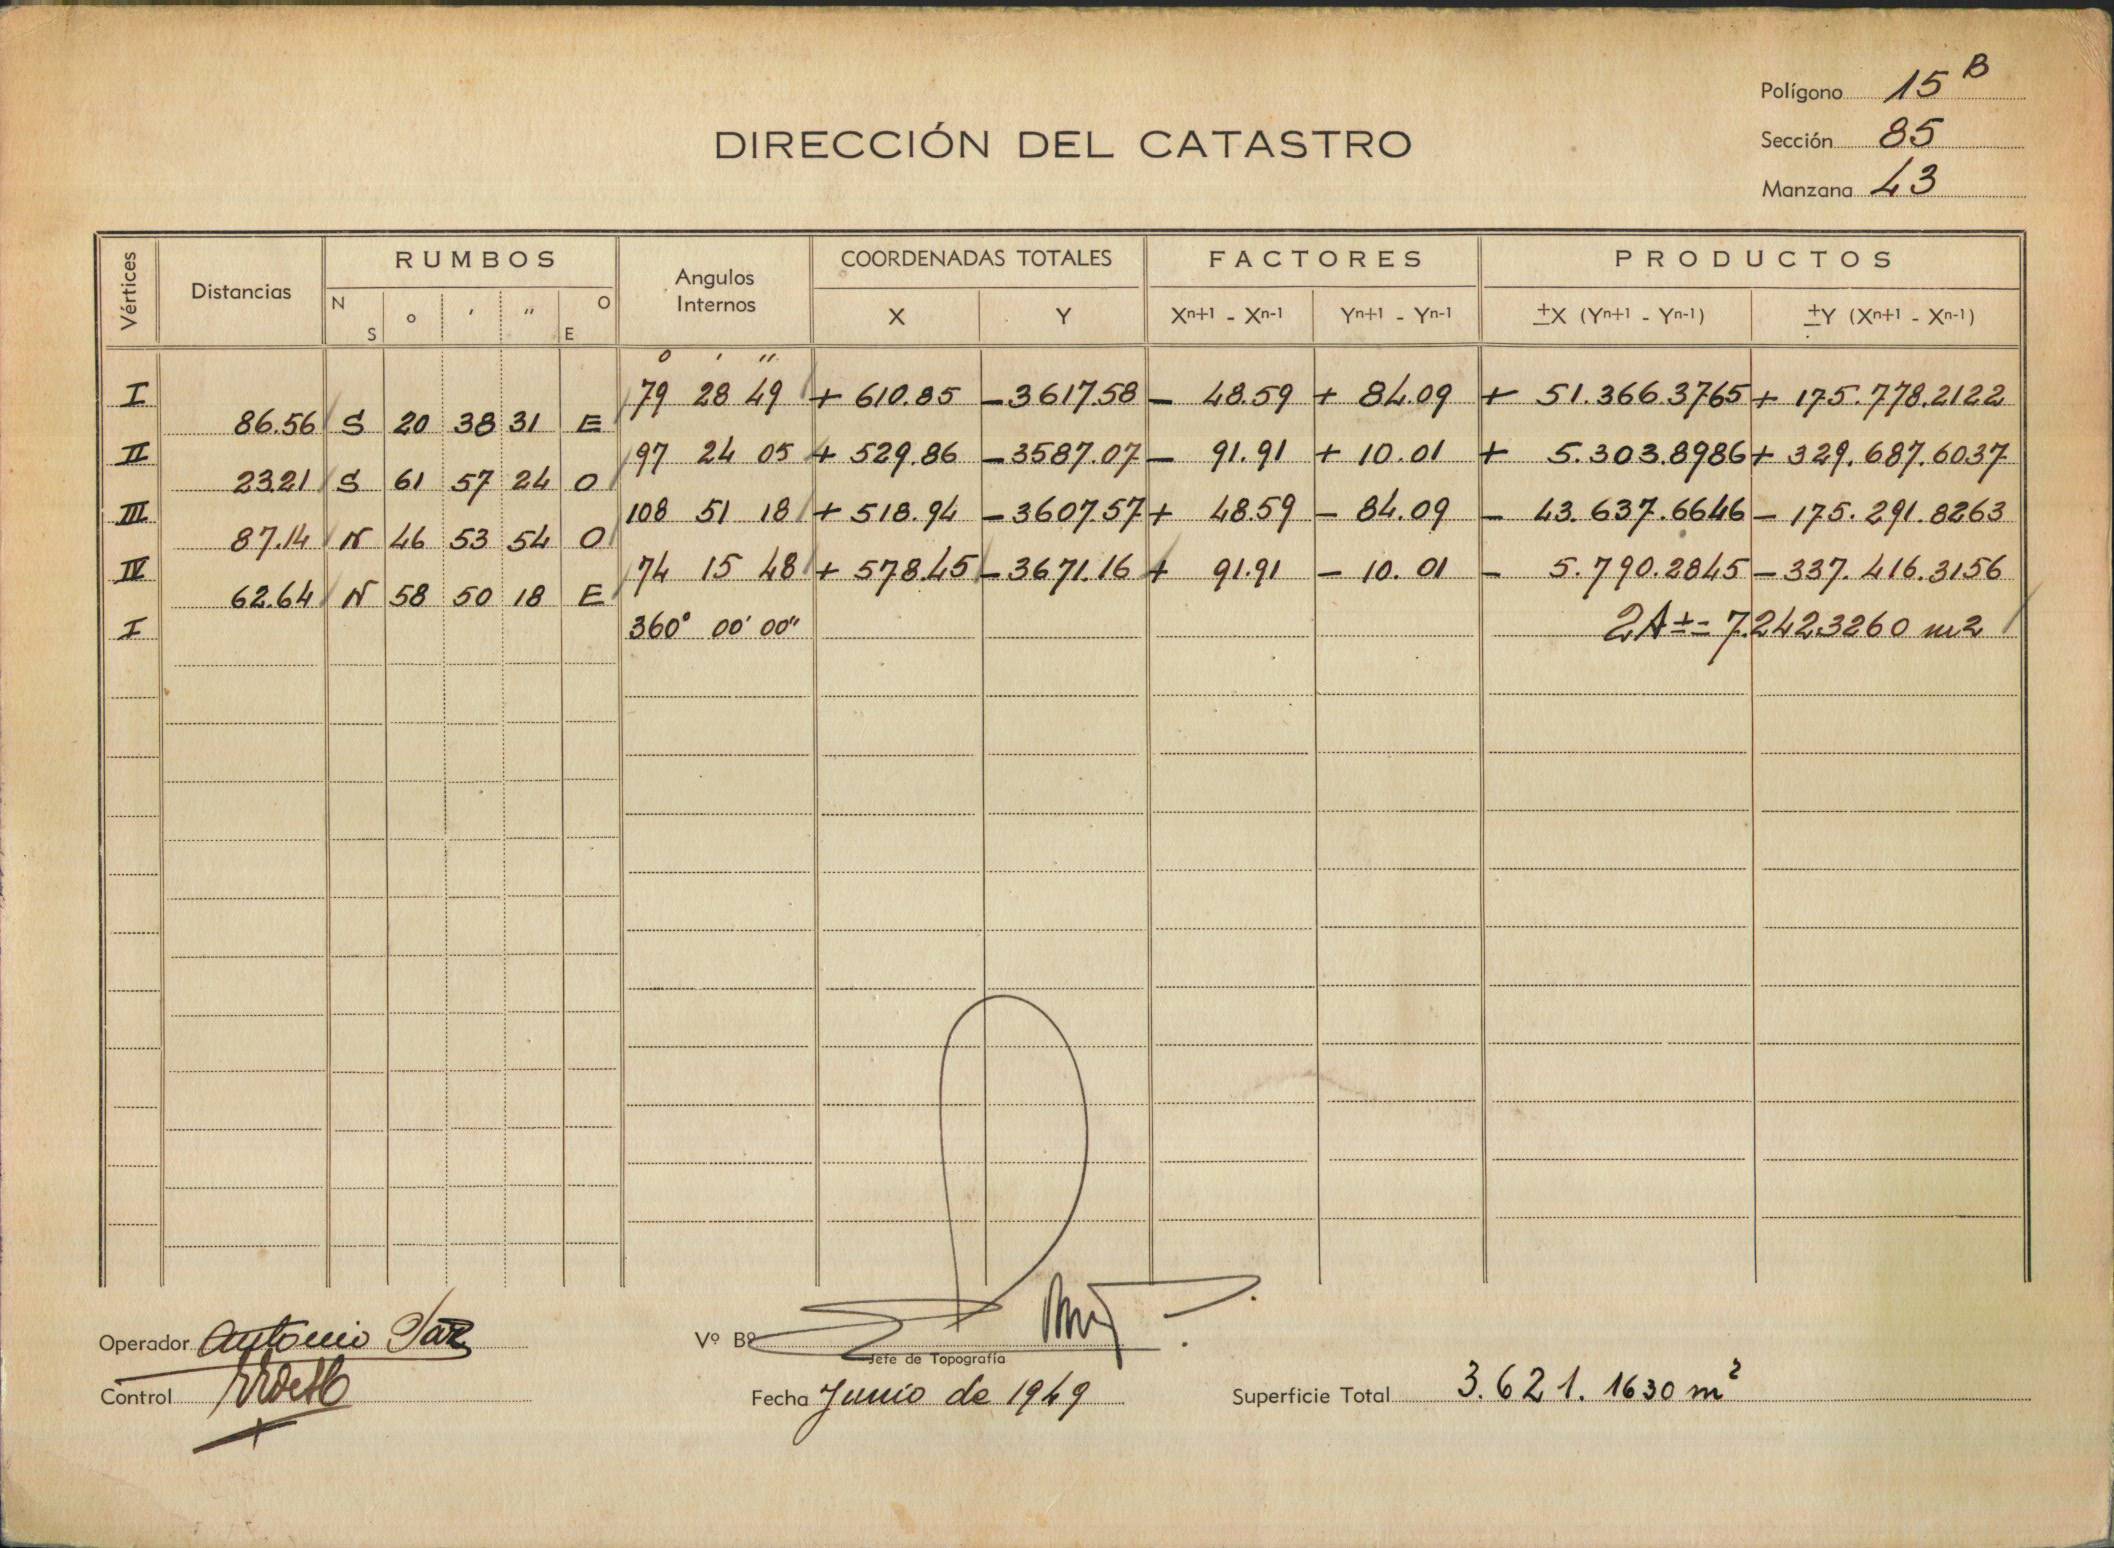 Polígono 15 B
DIRECCIÓN DEL CATASTRO
Sección 85
Manzana 43
Vértices Distancias RUMBOS Angulos Internos COORDENADAS TOTALES FACTORES PRODUCTOS
N S ° ' " O E X Y Xn+1 - Xn-1 Yn+1 - Yn-1 ±X (Yn+1 - Yn-1) ±Y (Xn+1 - Xn-1)
° ' "
I 79 28 49 + 610.85 - 3617.58 - 48.59 + 84.09 + 51.366.3765 + 175.778.2122
86.56 S 20 38 31 E
II 97 24 05 + 529.86 - 3587.07 - 91.91 + 10.01 + 5.303.8986 + 329.687.6037
23.21 S 61 57 24 O
III 108 51 18 + 518.94 - 3607.57 + 48.59 - 84.09 - 43.637.6646 - 175.291.8263
87.14 N 46 53 54 O
IV 74 15 48 + 578.45 - 3671.16 + 91.91 - 10.01 - 5.790.2845 - 337.416.3156
62.64 N 58 50 18 E
I 360° 00' 00" 2A ± = 7.242.3260 m2
Operador Antonio
Vº Bº
Jefe de Topografía
Control
Fecha Junio de 1949
Superficie Total 3.621.1630 m²